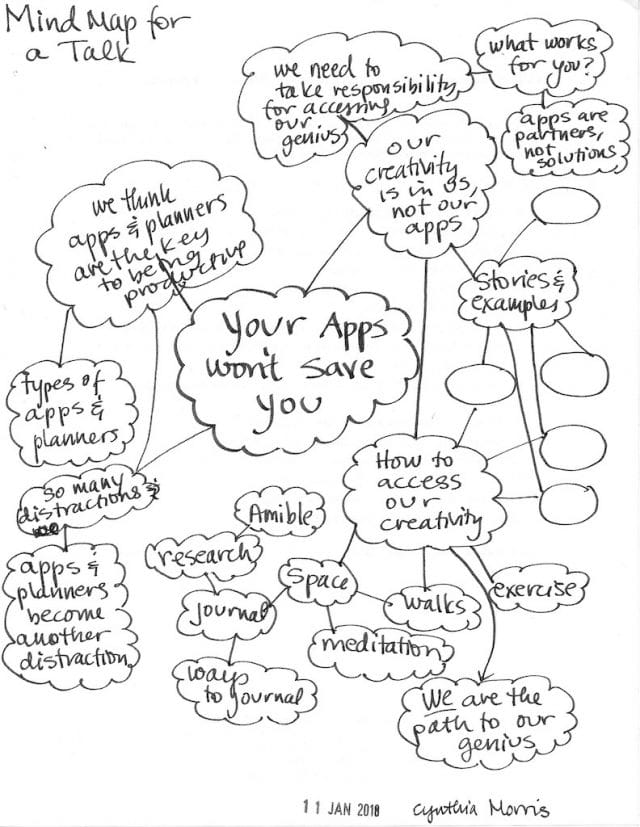 Mind Map for
a Talk
we need to
take responsibility
for accessing
our
genius
what works
for you?
apps are
partners,
not
solutions
our
creativity
is in us,
not our
apps
we think
apps & planners
are the key
to being
productive
Stories &
examples
Your Apps
won't save
you
types of
apps &
planners
so many
distractions
apps &
planners
become
another
distraction
How to
access
our
creativity
Amible
research
Space
journal
walks
exercise
meditation
ways
to journal
We are the
path to our
genius
11 JAN 2018
Cynthia Morris